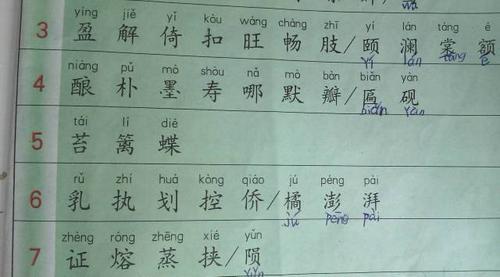 yíng jiě yǐ kòu wàng chàng zhī yí lán táng é
3 盈 解 倚 扣 旺 畅 肢/颐 澜 棠 额
yí lán táng é
niàng pǔ mò shòu nǎ mò bàn biǎn yàn
4 酿 朴 墨 寿 哪 默 瓣/匾 砚
biǎn yàn
tái lí dié
5 苔 篱 蝶
rǔ zhí huá kòng qiáo jú péng pài
6 乳 执 划 控 侨/橘 澎 湃
jú péng pài
zhèng róng zhēng xié yǔn
7 证 熔 蒸 挟/陨
yǔn